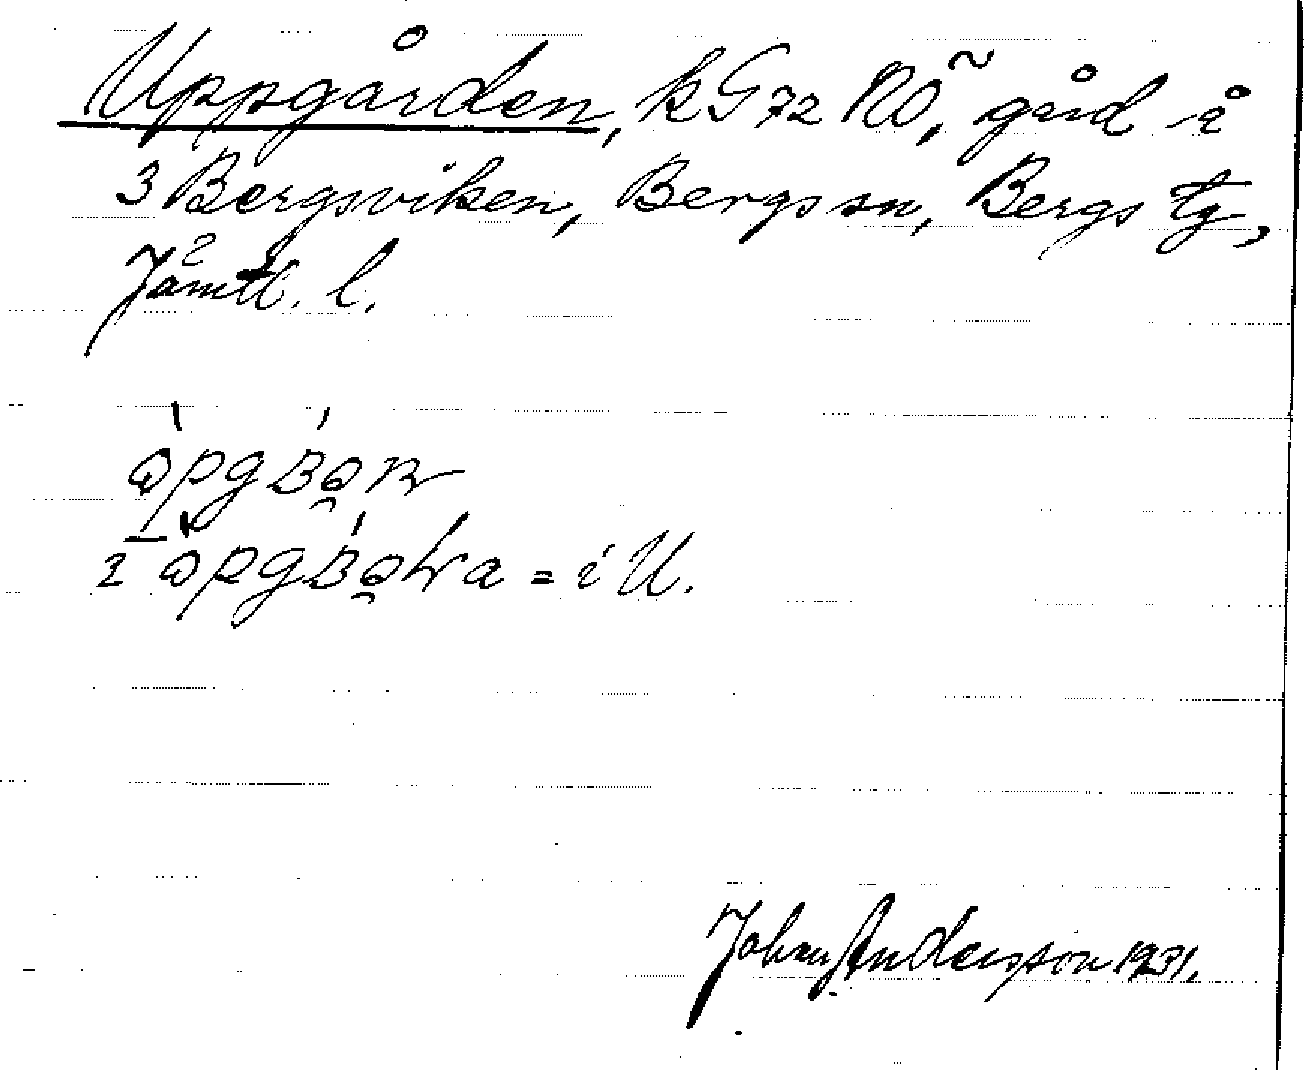 Uppgården, kG72 RÕ, gård å
3 Bergsviken, Bergs sn, Bergs tg,
Jämtl. l.
= i U.
Johan Andersson 1931.